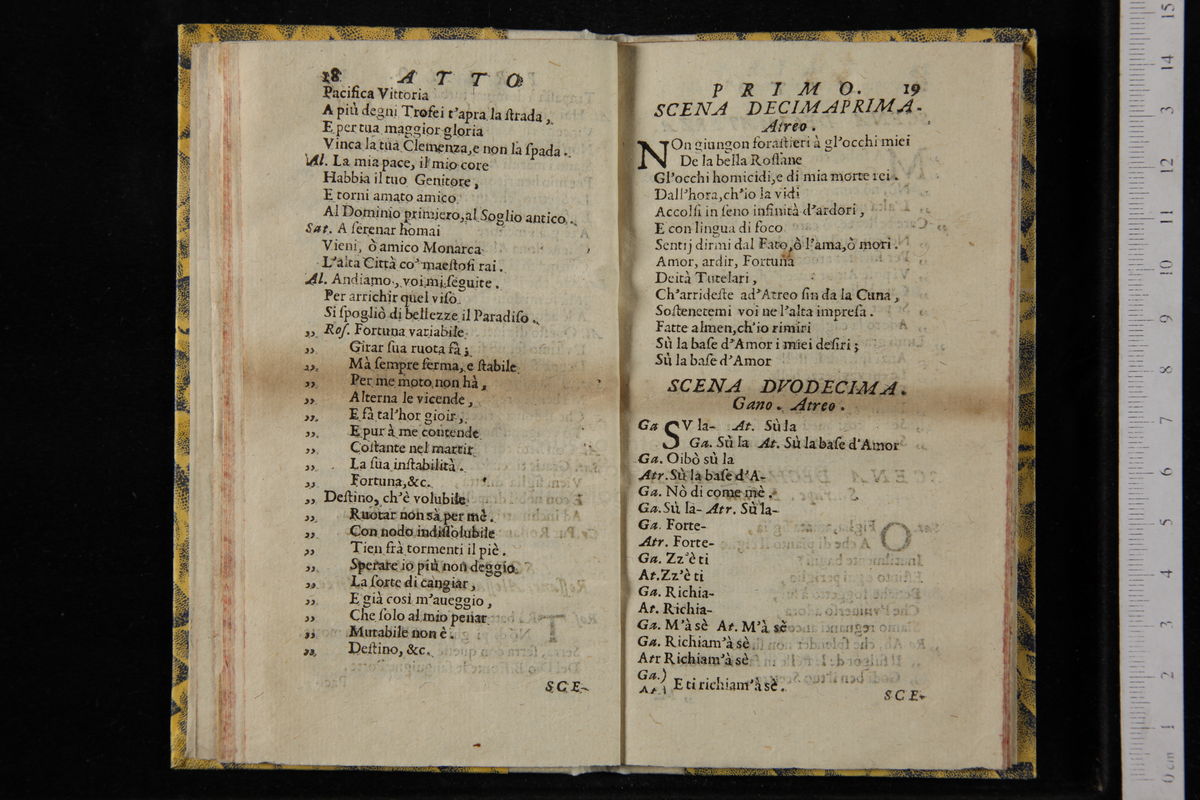 18 ATTO
Pacifica Vittoria
A più degni Trofei t'apra la ſtrada,
E per tua maggior gloria
Vinca la tua Clemenza, e non la ſpada.
Al. La mia pace, il mio core
Habbia il tuo Genitore,
E torni amato amico
Al Dominio primiero, al Soglio antico.
Sat. A ſerenar homai
Vieni, ò amico Monarca
L'alta Città co' maeſtoſi rai.
Al. Andiamo, voi mi ſeguite.
Per arrichir quel viſo
Si ſpogliò di bellezze il Paradiſo.
„ Roſ. Fortuna variabile
„ Girar ſua ruota fà;
„ Mà ſempre ferma, e ſtabile
„ Per me moto non hà,
„ Alterna le vicende,
„ E fà tal'hor gioir,
„ E pur à me contende
„ Coſtante nel martir
„ La ſua inſtabilità.
„ Fortuna, &c.
„ Deſtino, ch'è volubile
„ Ruotar non sà per mè.
„ Con nodo indiſſolubile
„ Tien frà tormenti il piè.
„ Sperare io più non deggio
„ La ſorte di cangiar,
„ E già così m'aueggio,
„ Che ſolo al mio penar
„ Mutabile non è.
„ Deſtino, &c.
SCE-
PRIMO. 19
SCENA DECIMAPRIMA.
Atreo.
NOn giungon foraſtieri à gl'occhi miei
De la bella Roſſane
Gl'occhi homicidi, e di mia morte rei.
Dall'hora, ch'io la vidi
Accolſi in ſeno infinità d'ardori,
E con lingua di foco
Sentij dirmi dal Fato, ò l'ama, ò mori.
Amor, ardir, Fortuna
Deità Tutelari,
Ch'arrideſte ad'Atreo ſin da la Cuna,
Soſtenetemi voi ne l'alta impreſa.
Fatte almen, ch'io rimiri
Sù la baſe d'Amor i miei deſiri;
Sù la baſe d'Amor
SCENA DVODECIMA.
Gano. Atreo.
Ga SV la- At. Sù la
Ga. Sù la At. Sù la baſe d'Amor
Ga. Oibò sù la
Atr. Sù la baſe d'A-
Ga. Nò di come mè.
Ga. Sù la- Atr. Sù la-
Ga. Forte-
Atr. Forte-
Ga. Zz'è ti
At. Zz'è ti
Ga. Richia-
At. Richia-
Ga. M'à sè At. M'à sè
Ga. Richiam'à sè
Atr Richiam'à sè
Ga.)
At.) E ti richiam'à sè.
SCE-